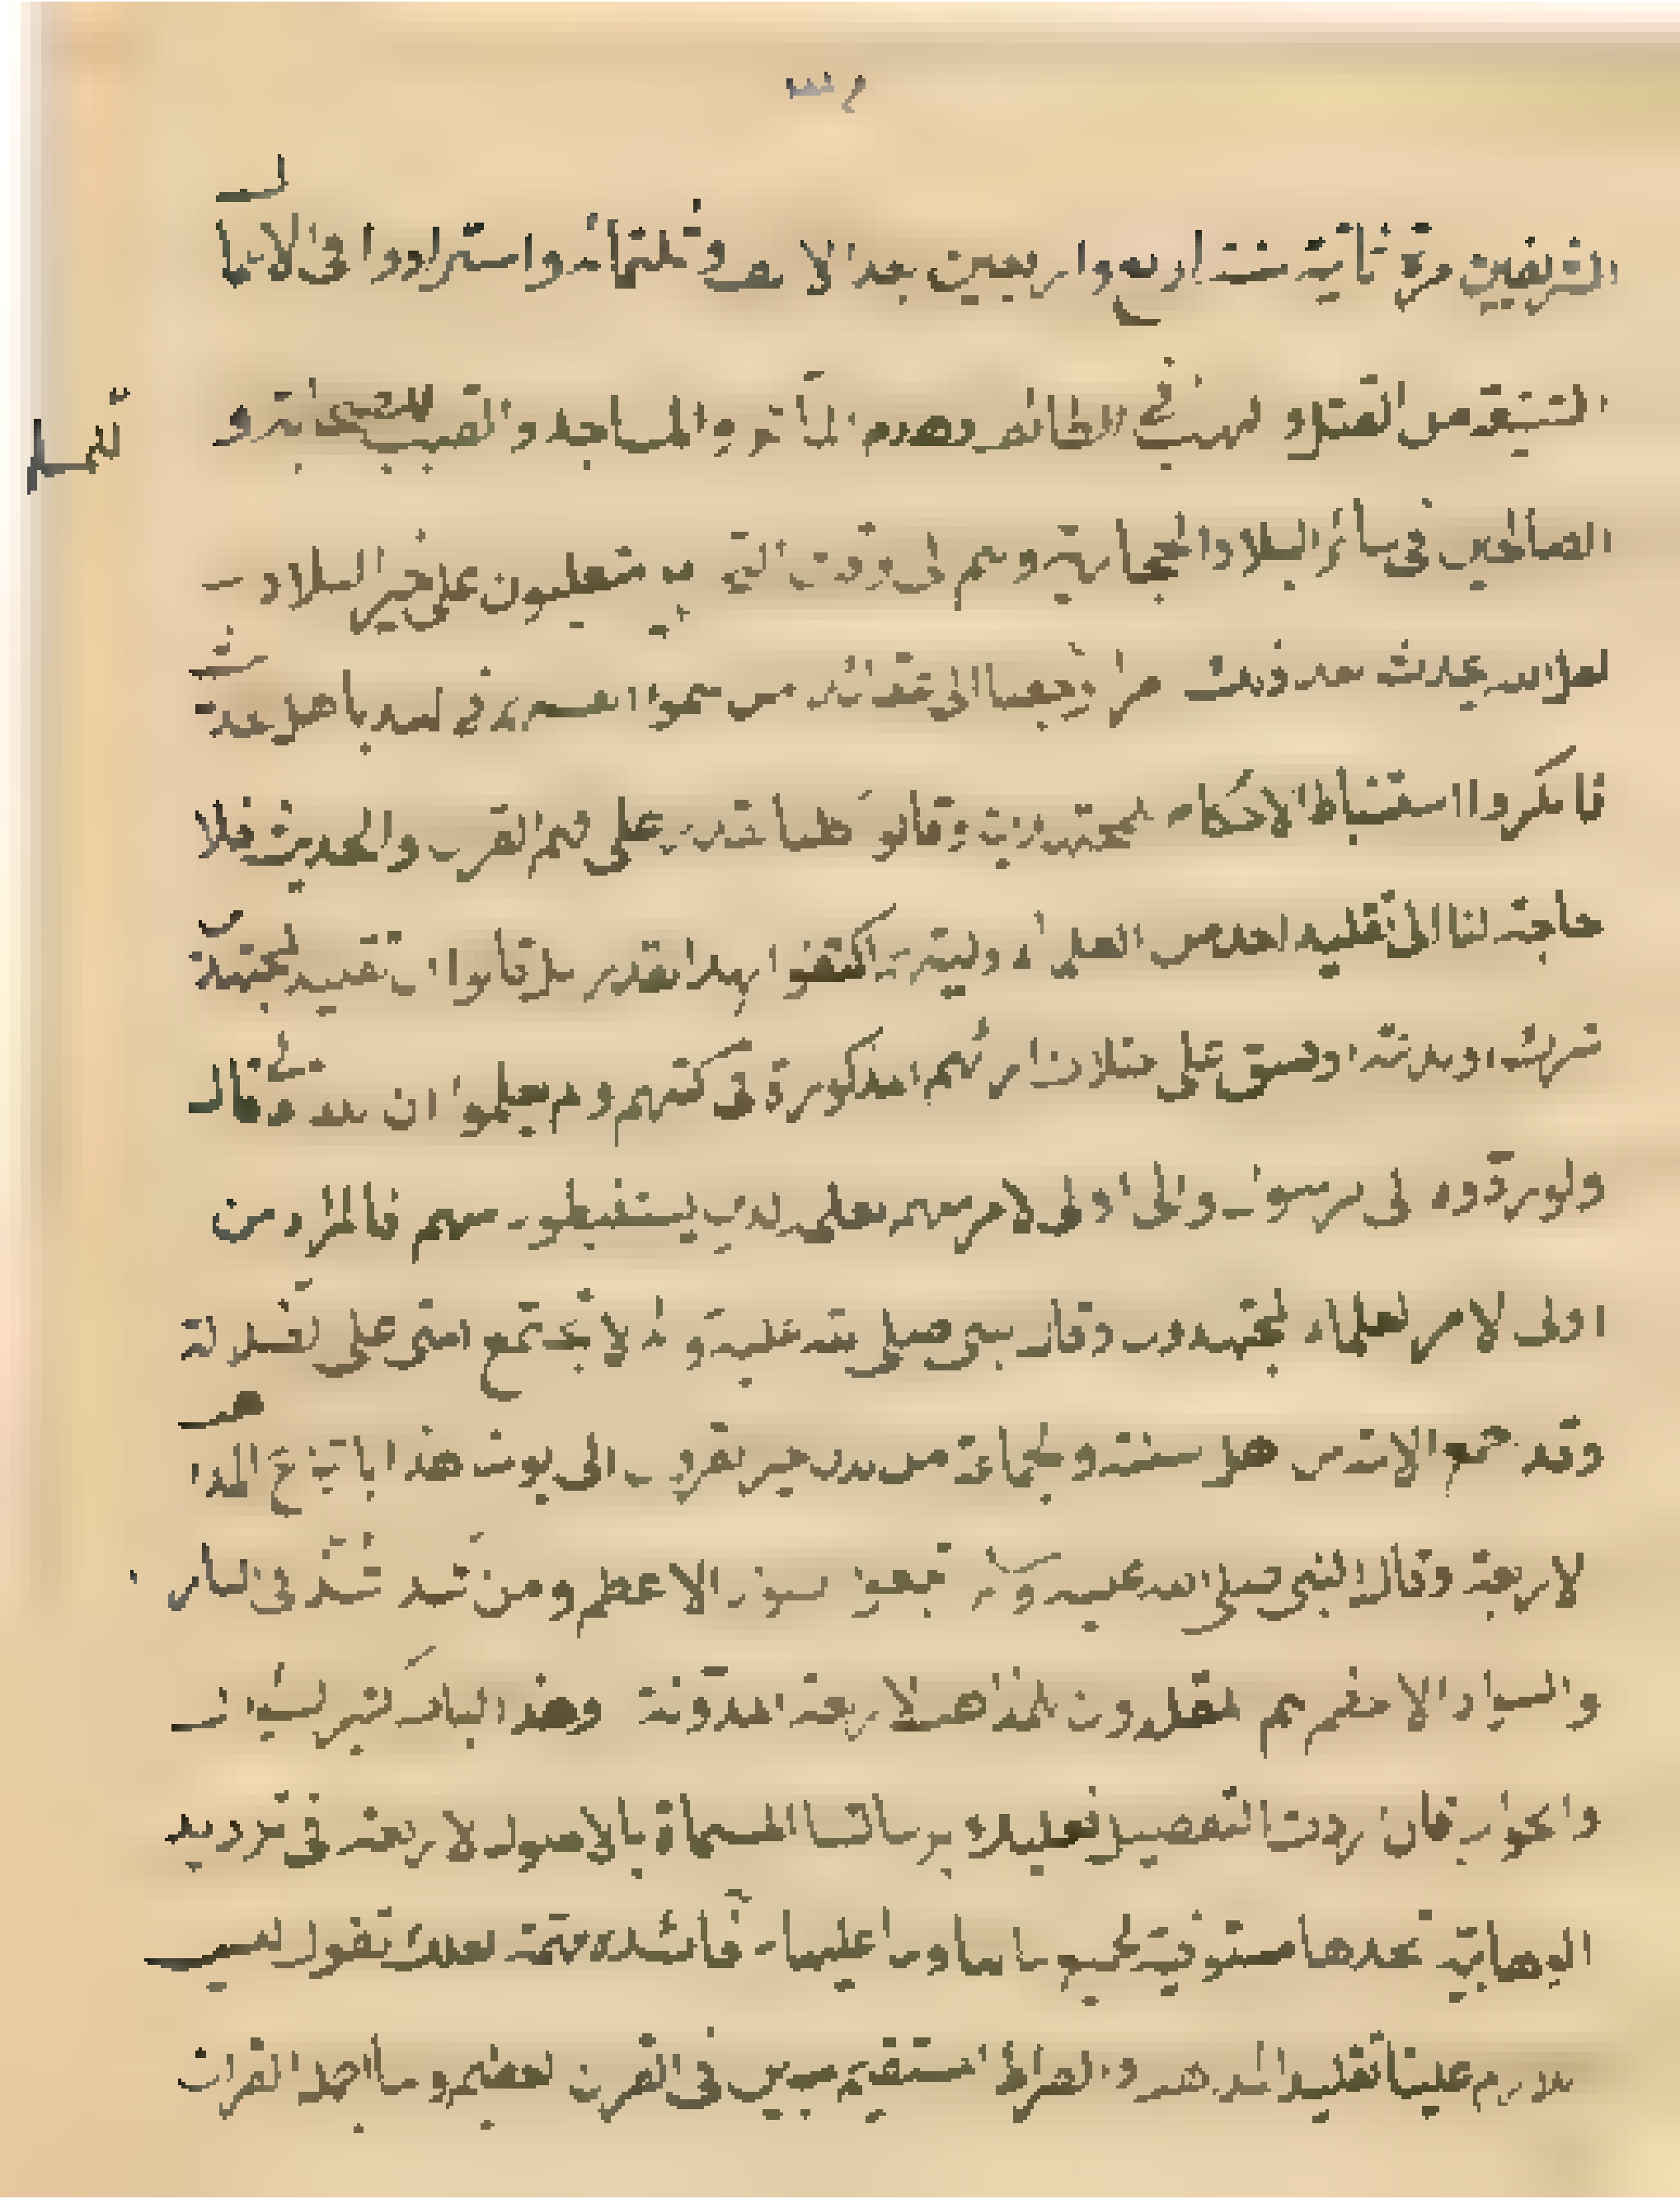 الشريفين مرة ثانية سنة اربع واربعين بعد الالف وثلثمائة واستزادوا في الافعال
الشنيعة من القتل و نهب في الطائف وهدم المآثر والمساجد والقبب للصحابة و
الصالحين في سائر البلاد الحجازية وهم الى وقت التحرير متغلبون على خير البلاد
لعل الله يحدث بعد ذلك امرا وتبعنا الى عقائد من سموا انفسهم في الهند باهل الحديث
فانكروا استنباط الاحكام للمجتهدين وقالوا كلنا قادر على فهم القرآن والحديث فلا
حاجة لنا الى تقليد احد من العلماء وليتهم اكتفوا بهذا القدر بل قالوا ان تقليد المجتهد
شرك او بدعة او فسق على اختلاف ارائهم المذكورة في كتبهم ولم يعلموا ان الله تعالى قال
ولو ردوه الى الرسول والى اولى الامر منهم لعلمه الذين يستنبطونه منهم فالمراد من
اولى الامر العلماء المجتهدون وقال النبي صلى الله عليه وسلم لا تجتمع امتى على الضلالة
وقد اجمع الامة من اهل السنة والجماعة من بعد خير القرون الى يومنا هذا باتباع المذاهب
الاربعة وقال النبي صلى الله عليه وسلم اتبعوا السواد الاعظم ومن شذ شذ في النار
والسواد الاعظم هم المقلدون للمذاهب الاربعة المدونة وهذا الباب كثير السؤال
والجواب فان اردت التفصيل فعليك برسالتنا المسماة بالاصول الاربعة في ترديد
الوهابية تجدها مستوفية لجميع ما لنا وما علينا فائدة مهمة لعلك تقول ليس
بلازم علينا تقليد المذهب والصراط المستقيم مبين في القرآن العظيم وما اجد القرآن